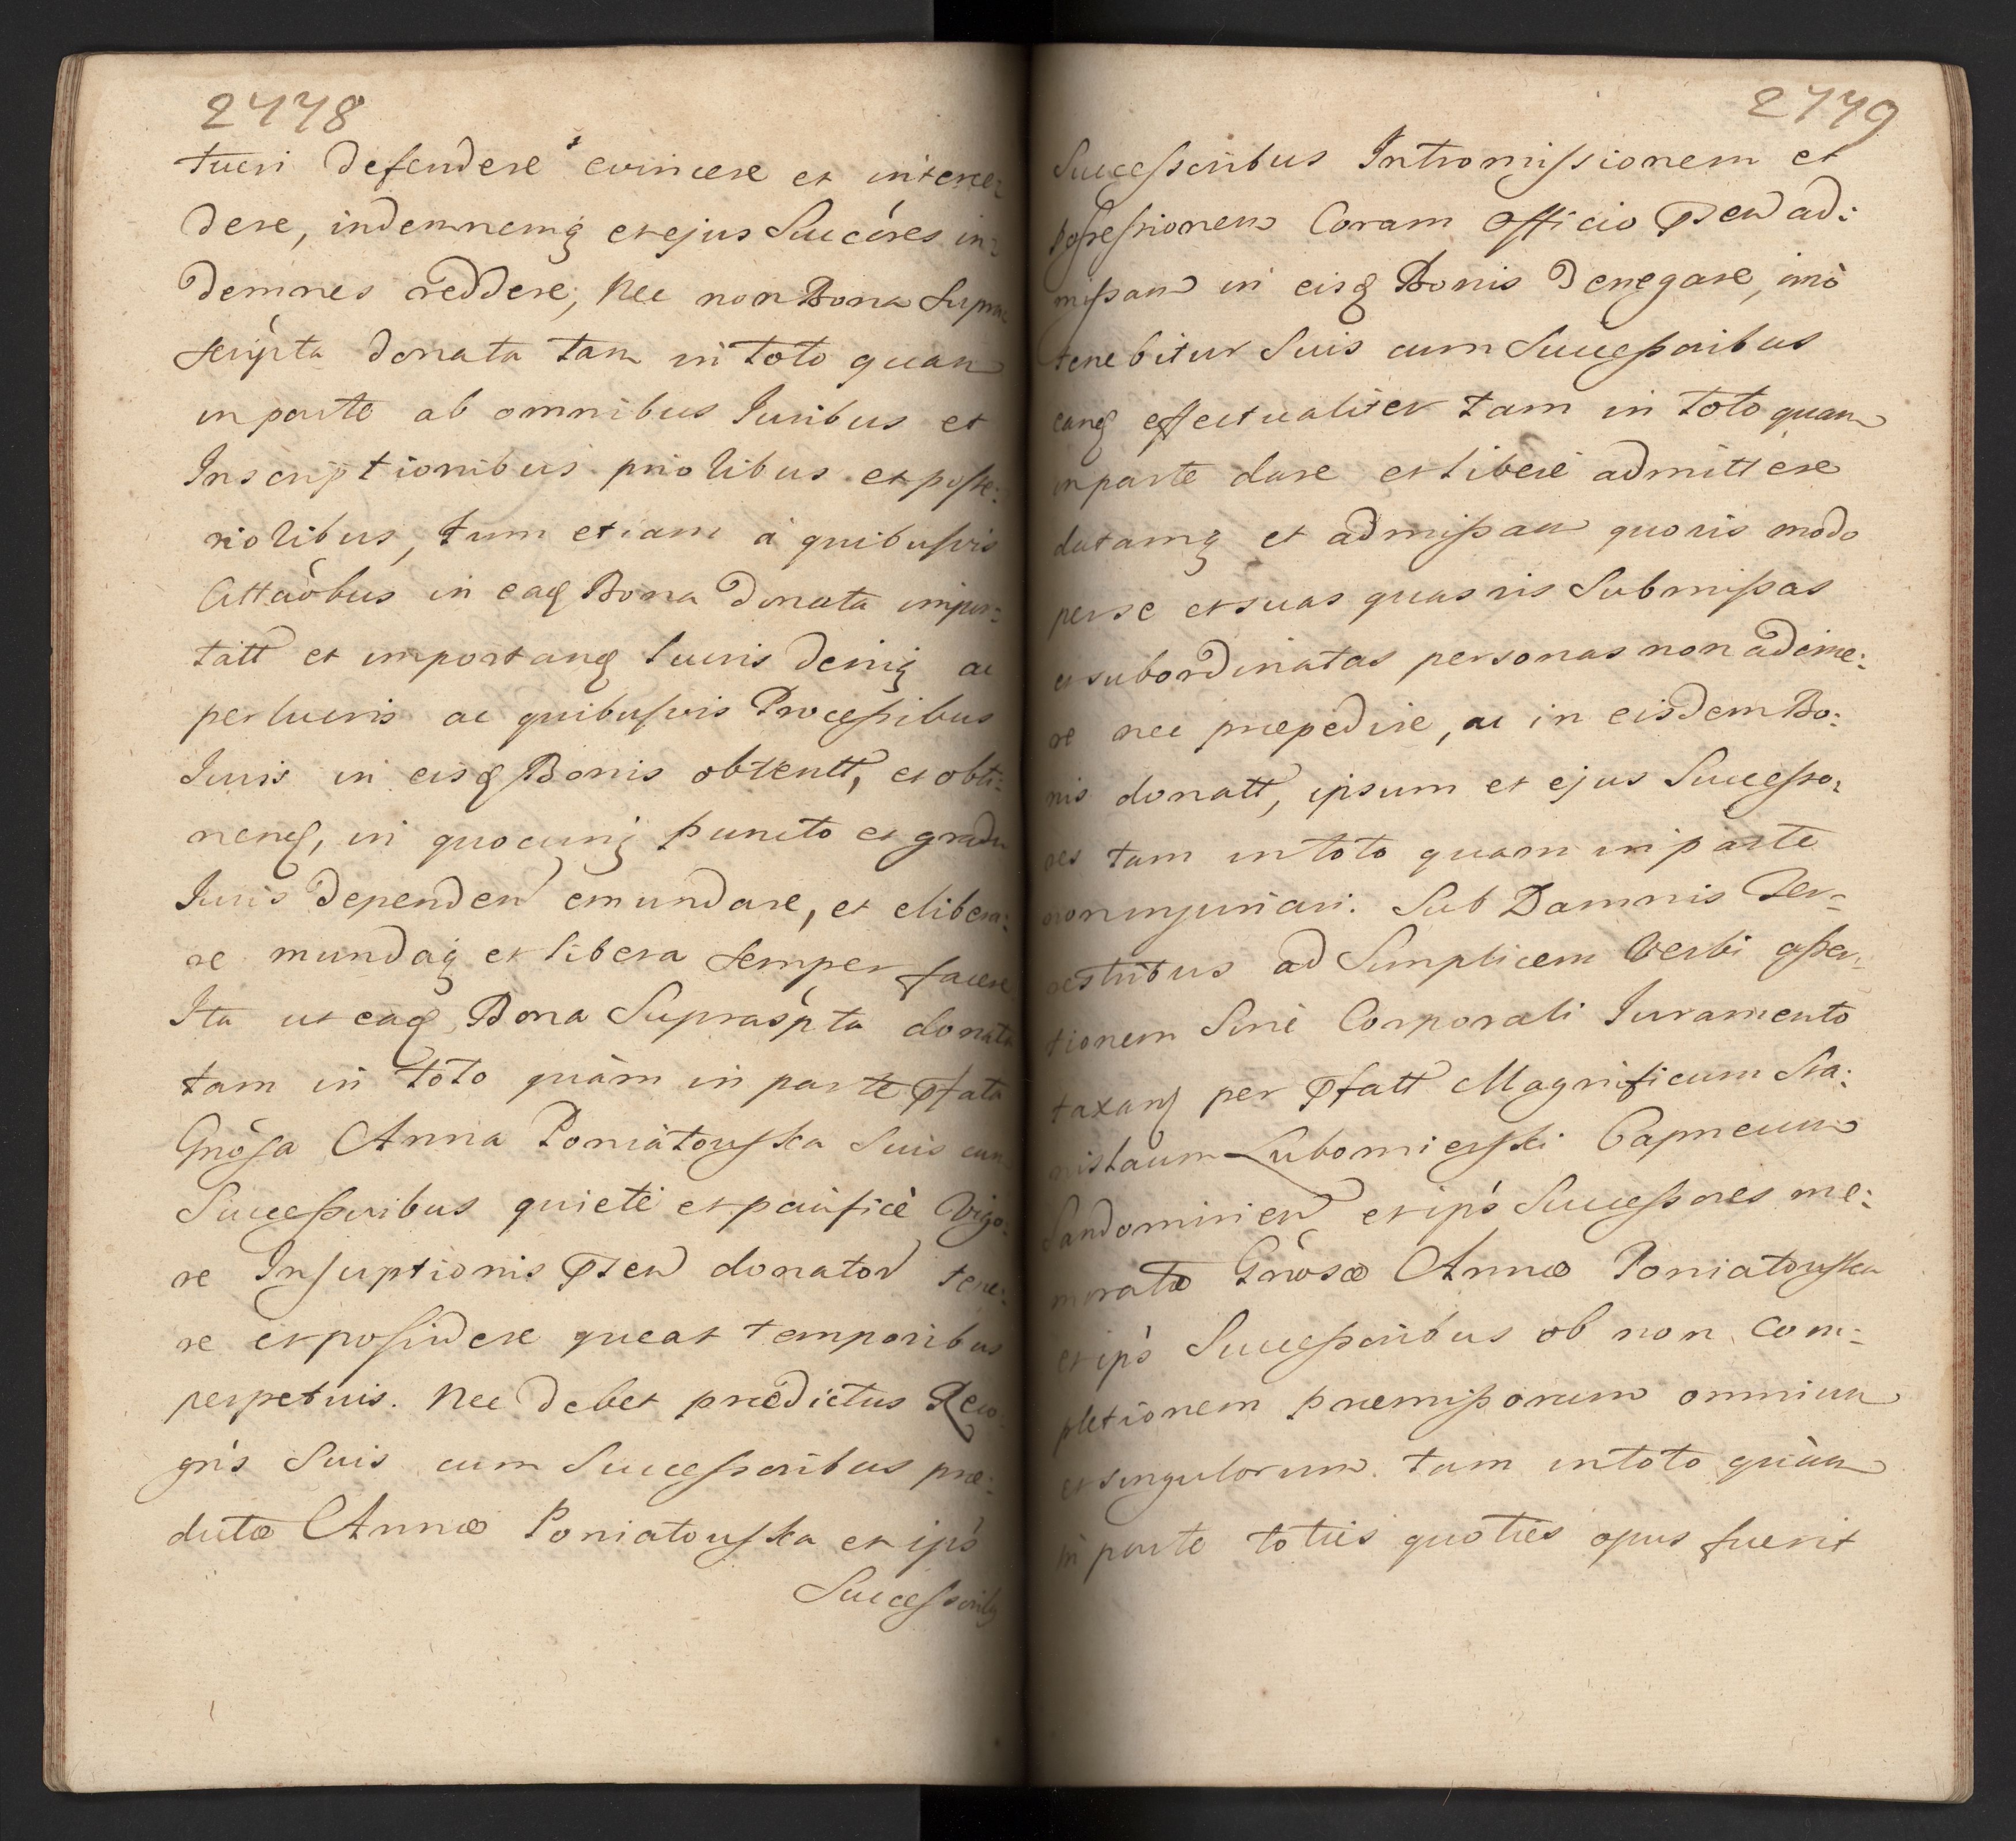 2778
tueri defendere evincere et interce
dere, indemnemq̃ et ejus Succ̀res in:
demnes reddere; Nec non Bona Supra
scripta donata tam in toto quam
in parte ab omnibus Juribus et
Inscriptionibus prioribus et poste:
rioribus, tum etiam à quibusvis
Attaòbus in eaq̃ Bona donata impor:
tatt et importanq̃ lucris deniq̃ ac
perlucris ac quibusvis Processibus
Juris in eisq̃ Bonis obtentt, et obti:
nenq̃, in quocunq̃ puncto et gradu
Juris dependen emundare, et elibera:
re mundaq̃ et libera semper facere
Ita ut eaq̃ Bona Suprasp̀ta donata
tam in toto quàm in parte Pfata
Gnòsa Anna Poniatouska Suis cum
Successoribus quietè et pacificè Vigo:
re Inscriptionis Pten donator tene:
re et possidere queat temporibus
perpetuis. Nec debet prædictus Reco:
gn̓s Suis cum Successoribus præ:
dictæ Annæ Poniatouska et ip̓s
Successoribq̃
2779
Successoribus Intromissionem et
possessionem Coram Officio Psen ad:
missam in eisq̃ Bonis denegare, imò
tenebitur Suis cum Successoribus
eanq̃ effectualiter tam in toto quam
in parte dare et liberè admittere
datamq̃ et admissam quovis modo
per se et suas quasvis Submissas
et subordinatas personas non adime:
re nec præpedire, ac in eisdem Bo:
nis donatt, ipsum et ejus Successo:
res tam in toto quam in parte
non injuriari. Sub Damnis Ter:
restribus ad Simplicem Verbi asser:
tionem Sinè Corporali Juramento
taxanq̃ per Pfatt Magnificum Sta:
nislaum Lubomierski Capneum
Sandomirien et ip̓s Successores me:
moratæ Gnòsæ Annæ Poniatouska
et ip̓s Successoribus ob non com:
pletionem præmissorum omnium
et singulorum tam in toto quàm
in parte toties quoties opus fuerit